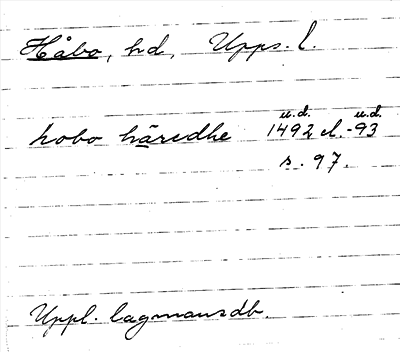 Håbo, hd, Upps. l.
u.d. u.d.
hobo häredhe 1492 el. -93
s. 97.
Uppl. lagmansdb.